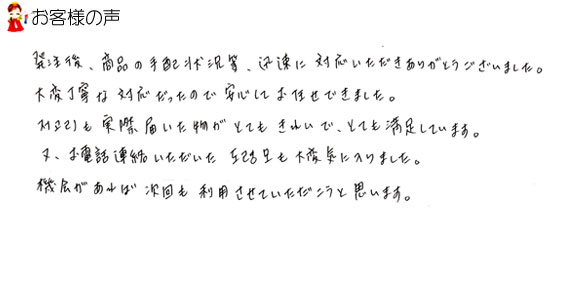 お客様の声
発注後、商品の手配状況等、迅速に対応いただきありがとうございました。
大変丁寧な対応だったので安心してお任せできました。
저고리も実際届いた物がとてもきれいで、とても満足しています。
又、お電話連絡いただいた も大変気に入りました。
機会があれば次回も利用させていただこうと思います。